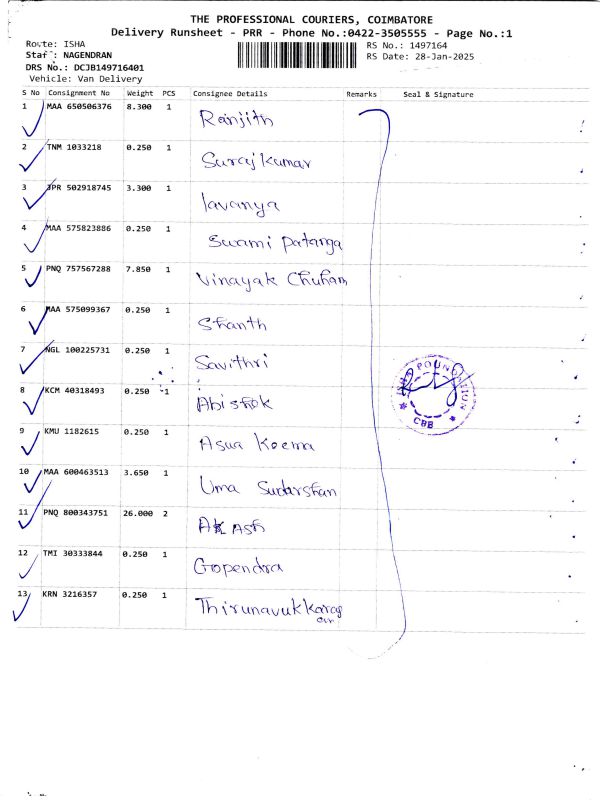 THE PROFESSIONAL COURIERS, COIMBATORE
Delivery Runsheet - PRR - Phone No.:0422-3505555 - Page No.:1
Route: ISHA
RS No.: 1497164
Staff: NAGENDRAN
RS Date: 28-Jan-2025
DRS No.: DCJB149716401
Vehicle: Van Delivery
S No Consignment No Weight PCS Consignee Details Remarks Seal & Signature
1 MAA 650506376 8.300 1 Ranjith
2 TNM 1033218 0.250 1 Suraj Kumar
3 JPR 502918745 3.300 1 lavanya
4 MAA 575823886 0.250 1 Swami Patanga
5 PNQ 757567288 7.850 1 Vinayak Chuham
6 MAA 575099367 0.250 1 Shanth
7 NGL 100225731 0.250 1 Savithri
8 KCM 40318493 0.250 1 Abishek
9 KMU 1182615 0.250 1 Asua Keema
10 MAA 600463513 3.650 1 Uma Sudarshan
11 PNQ 800343751 26.000 2 Akash
12 TMI 30333844 0.250 1 Gopendra
13 KRN 3216357 0.250 1 Thirunavukkaras
FOUNDATION
CBE